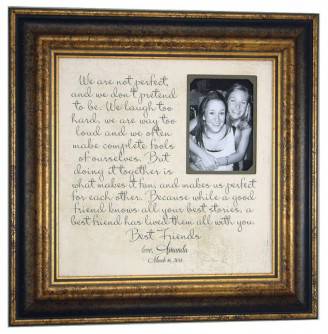 We are not perfect,
and we don't pretend
to be. We laugh too
hard, we are way too
loud and we often
make complete fools
of ourselves. But
doing it together is
what makes it fun, and makes us perfect
for each other. Because while a good
friend knows all your best stories, a
best friend has lived them all with you.
Best Friends
love, Amanda
March 16, 2013